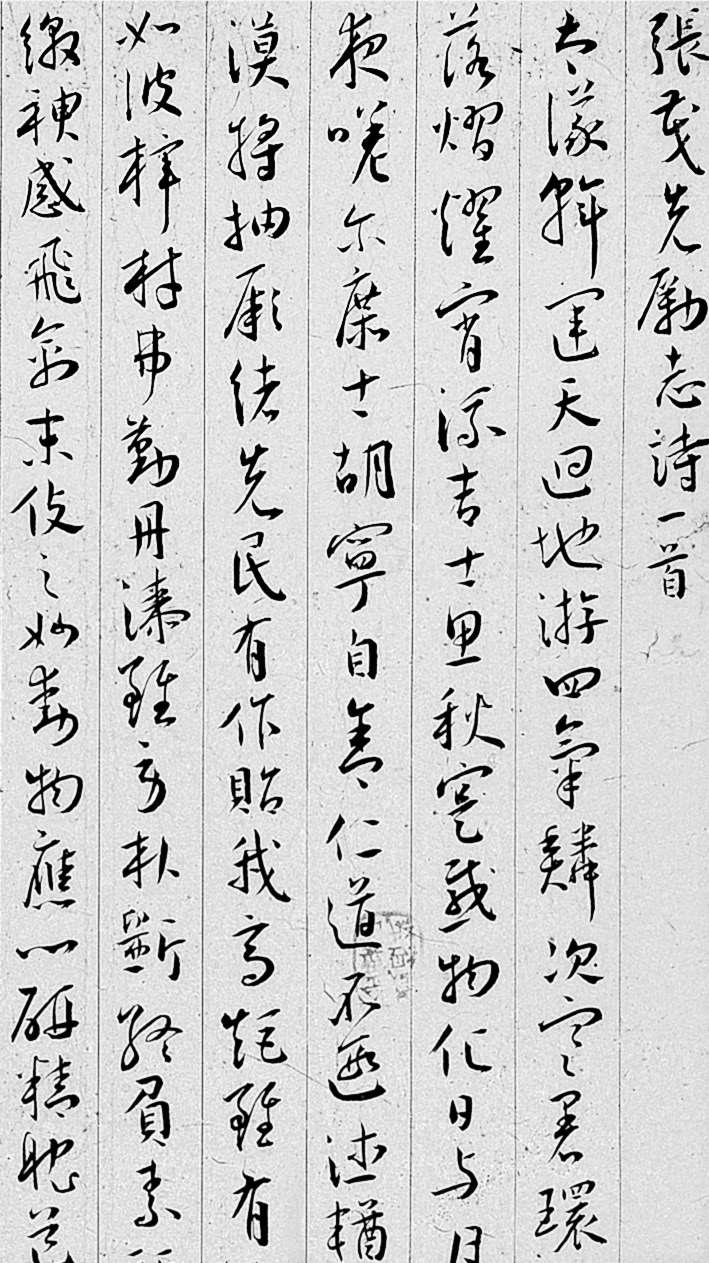 張茂先勵志詩一首
大儀斡運天迴地游四氣鱗次寒暑環
落熠燿宵流吉士思秋寔感物化日与月
夜嗟尒庶士胡寧自舍仁道不遐德輶
漠將抽厥緒先民有作貽我高矩雖有
如彼梓材弗勤丹漆雖勞朴斲終負素
繳神感飛禽末伎之妙動物應心研精耽